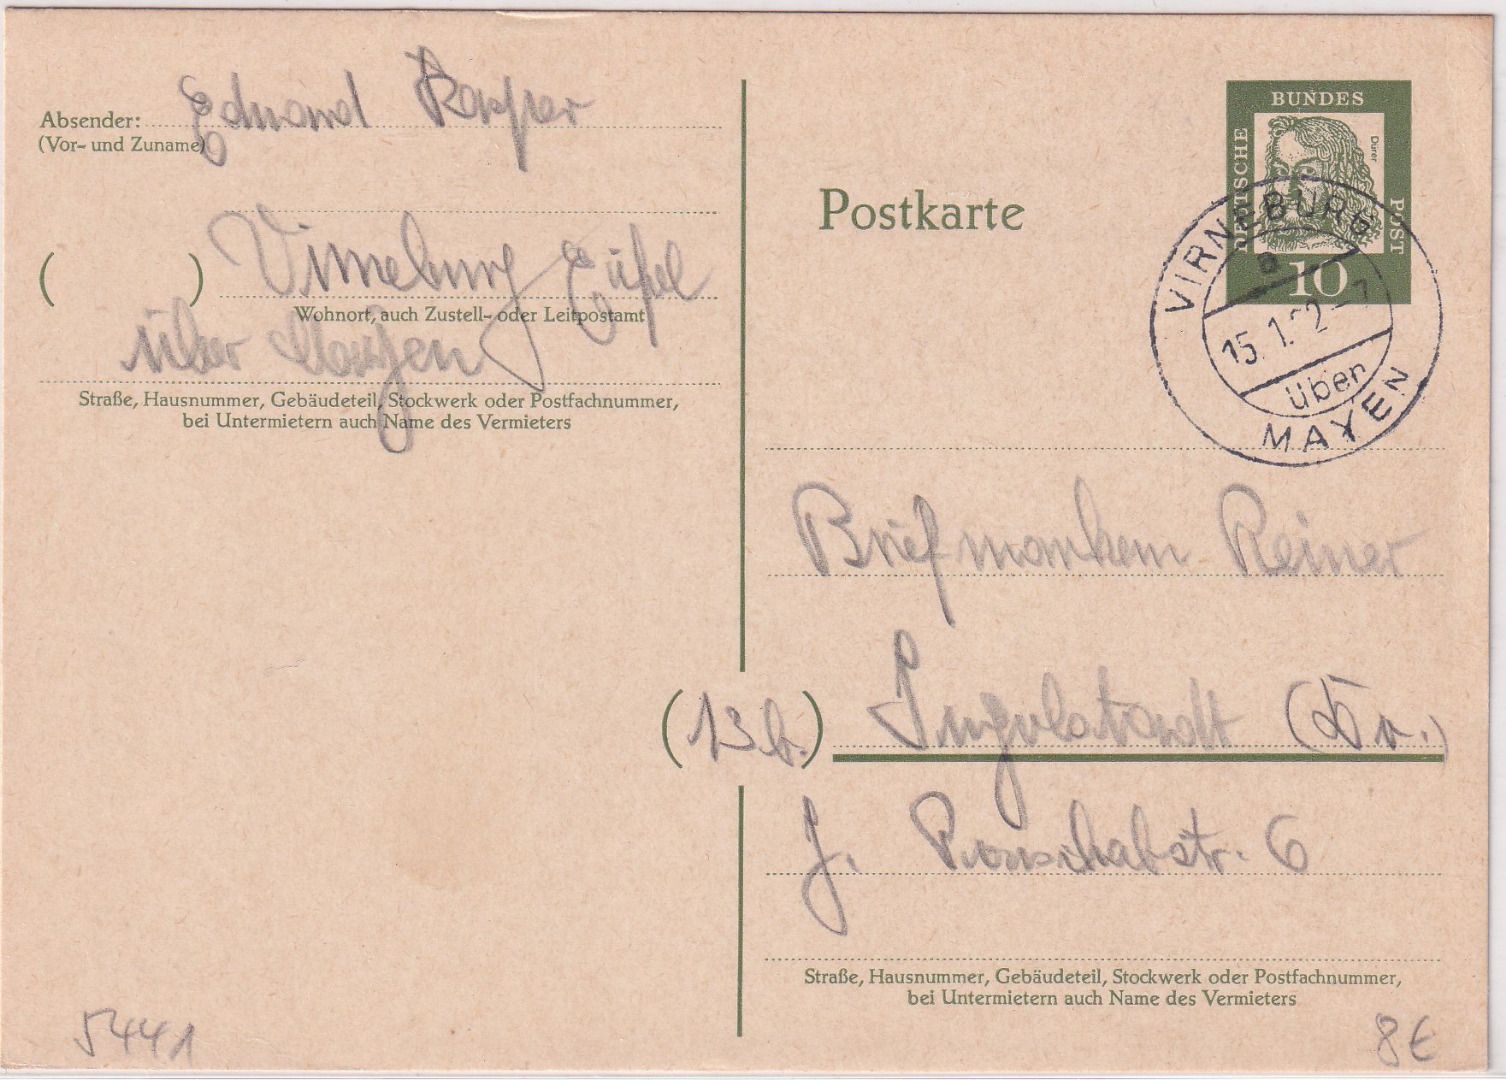 Absender: Eduard Kasper
(Vor- und Zuname)
( ) Virneburg Eifel
Wohnort, auch Zustell- oder Leitpostamt
über Mayen
Straße, Hausnummer, Gebäudeteil, Stockwerk oder Postfachnummer,
bei Untermietern auch Name des Vermieters
5441
Postkarte
DEUTSCHE
BUNDES
POST
Dürer
10
VIRNEBURG
a
15.1.62-7
über
MAYEN
Briefmarken Reiner
(13b.) Ingolstadt (Do.)
J. Ponschabstr. 6
Straße, Hausnummer, Gebäudeteil, Stockwerk oder Postfachnummer,
bei Untermietern auch Name des Vermieters
8€